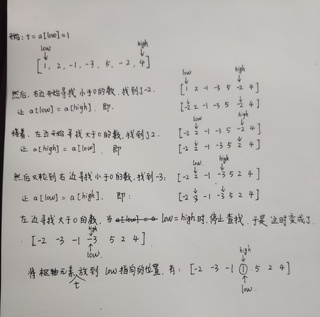 开始: t = a[low] = 1
low high
[ 1, 2, -1, -3, 5, -2, 4 ]
low high
[ 1 2 -1 -3 5 -2 4 ]
然后, 右边开始寻找小于0的数, 找到了-2.
让 a[low] = a[high]. 即
[ -2 2 -1 -3 5 -2 4 ]
接着, 左边开始寻找大于0的数, 找到了2.
[ -2 2 -1 -3 5 -2 4 ]
让 a[high] = a[low]. 即
[ -2 2 -1 -3 5 2 4 ]
low high
然后又轮到右边寻找小于0的数, 找到-3:
[ -2 2 -1 -3 5 2 4 ]
让 a[low] = a[high]. 即:
[ -2 -3 -1 -3 5 2 4 ]
左边寻找大于0的数, low = high 时, 停止查找, 于是 这时变成了
high
[ -2 -3 -1 -3 5 2 4 ]
low
high
将枢轴元素放到 low 指向的位置, 有: [ -2 -3 -1 1 5 2 4 ]
t
low